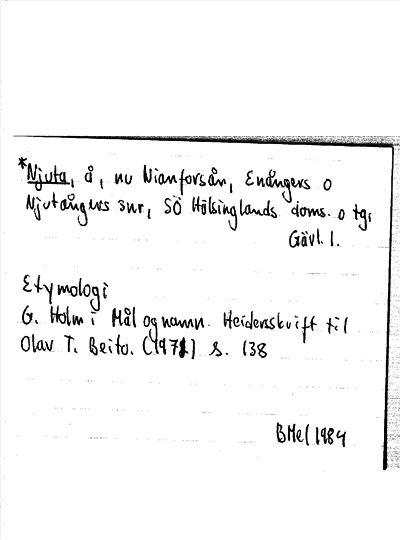 *Njuta, å, nu Nianforsån, Enångers o
Njutångers snr, SÖ Hälsinglands doms. o tg,
Gävl. l.
Etymologi
G. Holm i Mål og namn. Heidersskrift til
Olav T. Beito. (1971) s. 138
BMel 1984